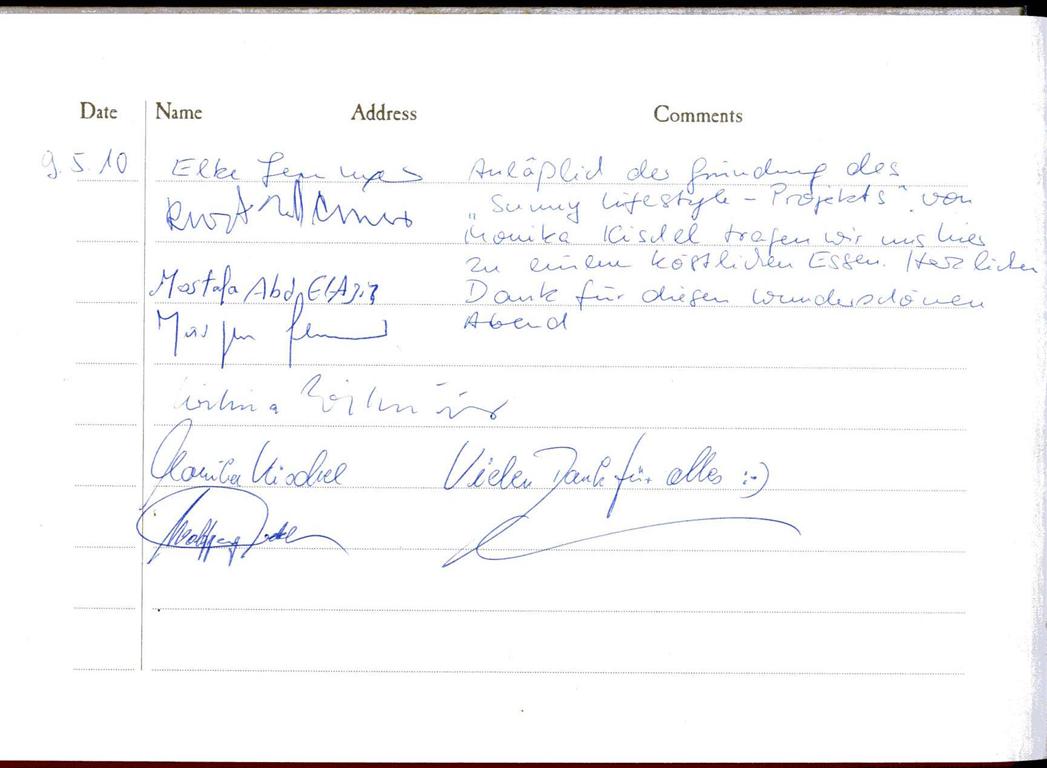 Date Name Address Comments
9.5.10 Elke Anläßlich der Gründung des
"Sunny Lifestyle - Projekts" von
Monika Kischel trafen wir uns hier
zu einem köstlichen Essen. Herzlichen
Mostafa Abd ElAziz Dank für diesen wunderschönen
Abend
Monika Kischel Vielen Dank für alles :-)
Wolfgang